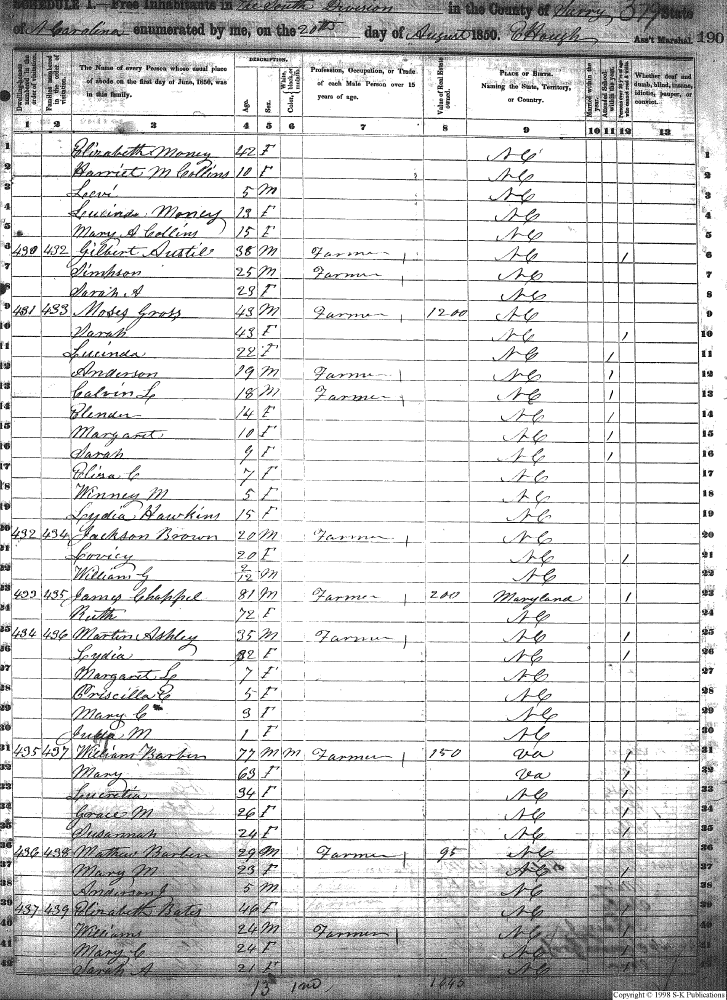 SCHEDULE I.—Free Inhabitants in The South Division in the County of Surry, 379 State
of N Carolina enumerated by me, on the 20th day of August 1850. E Hough Ass't Marshal. 190
Dwelling-houses numbered in the order of visitation.
Families numbered in the order of visitation.
The Name of every Person whose usual place of abode on the first day of June, 1850, was in this family.
DESCRIPTION.
Age.
Sex.
White, black, or mulatto. Color,
Profession, Occupation, or Trade of each Male Person over 15 years of age.
Value of Real Estate owned.
PLACE OF BIRTH.
Naming the State, Territory, or Country.
Married within the year.
Attended School within the year.
Whether deaf and dumb, blind, insane, idiotic, pauper, or convict.
1 2 3 4 5 6 7 8 9 10 11 12 13
1 Elizabeth Money 42 F NC 1
2 Harriet M Collins 10 F NC 2
3 Levi 5 M NC 3
4 Lucinda Money 13 F NC 4
5 Mary A Collins 15 F NC 5
6 430 432 Gilbert Austil 38 M Farmer 1 NC 1 6
7 Simpson 25 M Farmer 1 NC 7
8 Sarah A 23 F NC 8
9 431 433 Moses Gross 43 M Farmer 1 1200 NC 9
10 Sarah 43 F NC 1 10
11 Lucinda 22 F NC 1 11
12 Anderson 19 M Farmer 1 NC 1 12
13 Calvin L 18 M Farmer 1 NC 1 13
14 Elender 14 F NC 1 14
15 Margaret 10 F NC 1 15
16 Sarah 9 F NC 1 16
17 Eliza C 7 F NC 17
18 Winney M 5 F NC 18
19 Lydia Hawkins 15 F NC 19
20 432 434 Jackson Brown 20 M Farmer 1 NC 20
21 Lovicy 20 F NC 1 21
22 William G 2/12 M NC 22
23 433 435 James Chappel 81 M Farmer 1 200 Maryland 1 23
24 Ruth 72 F NC 24
25 434 436 Martin Ashley 35 M Farmer 1 NC 1 25
26 Lydia 32 F NC 1 26
27 Margaret L 7 F NC 27
28 Priscilla E 5 F NC 28
29 Mary C 3 F NC 29
30 Julia M 1 F NC 30
31 435 437 William Barber 77 M M Farmer 1 150 Va 1 31
32 Mary 63 F Va 1 32
33 Lucretia 34 F NC 1 33
34 Grace M 26 F NC 1 34
35 Susannah 24 F NC 1 35
36 436 438 Mathew Barber 29 M Farmer 1 95 NC 36
37 Mary M 23 F NC 1 37
38 Anderson J 5 M NC 38
39 437 439 Elizabeth Bates 46 F NC 1 39
40 Williams 24 M Farmer 1 NC 40
41 Mary C 24 F NC 1 41
42 Sarah A 21 F NC 1 42
13 1645
Copyright © 1998 S-K Publications